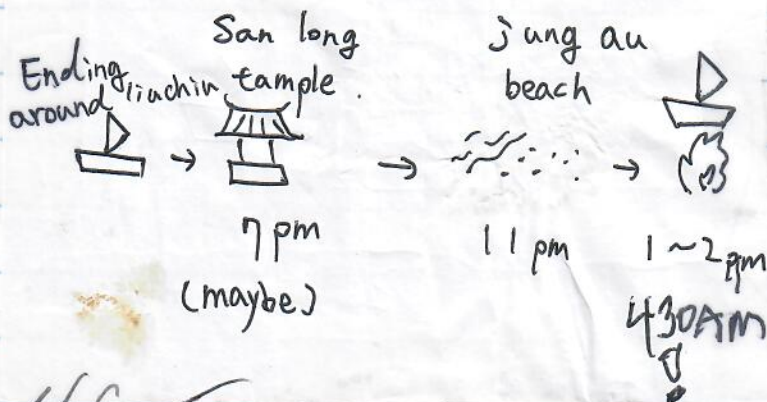 Ending around liuchiu
San long tample.
jung au beach
7 pm (maybe)
11 pm
1~2 pm
430AM